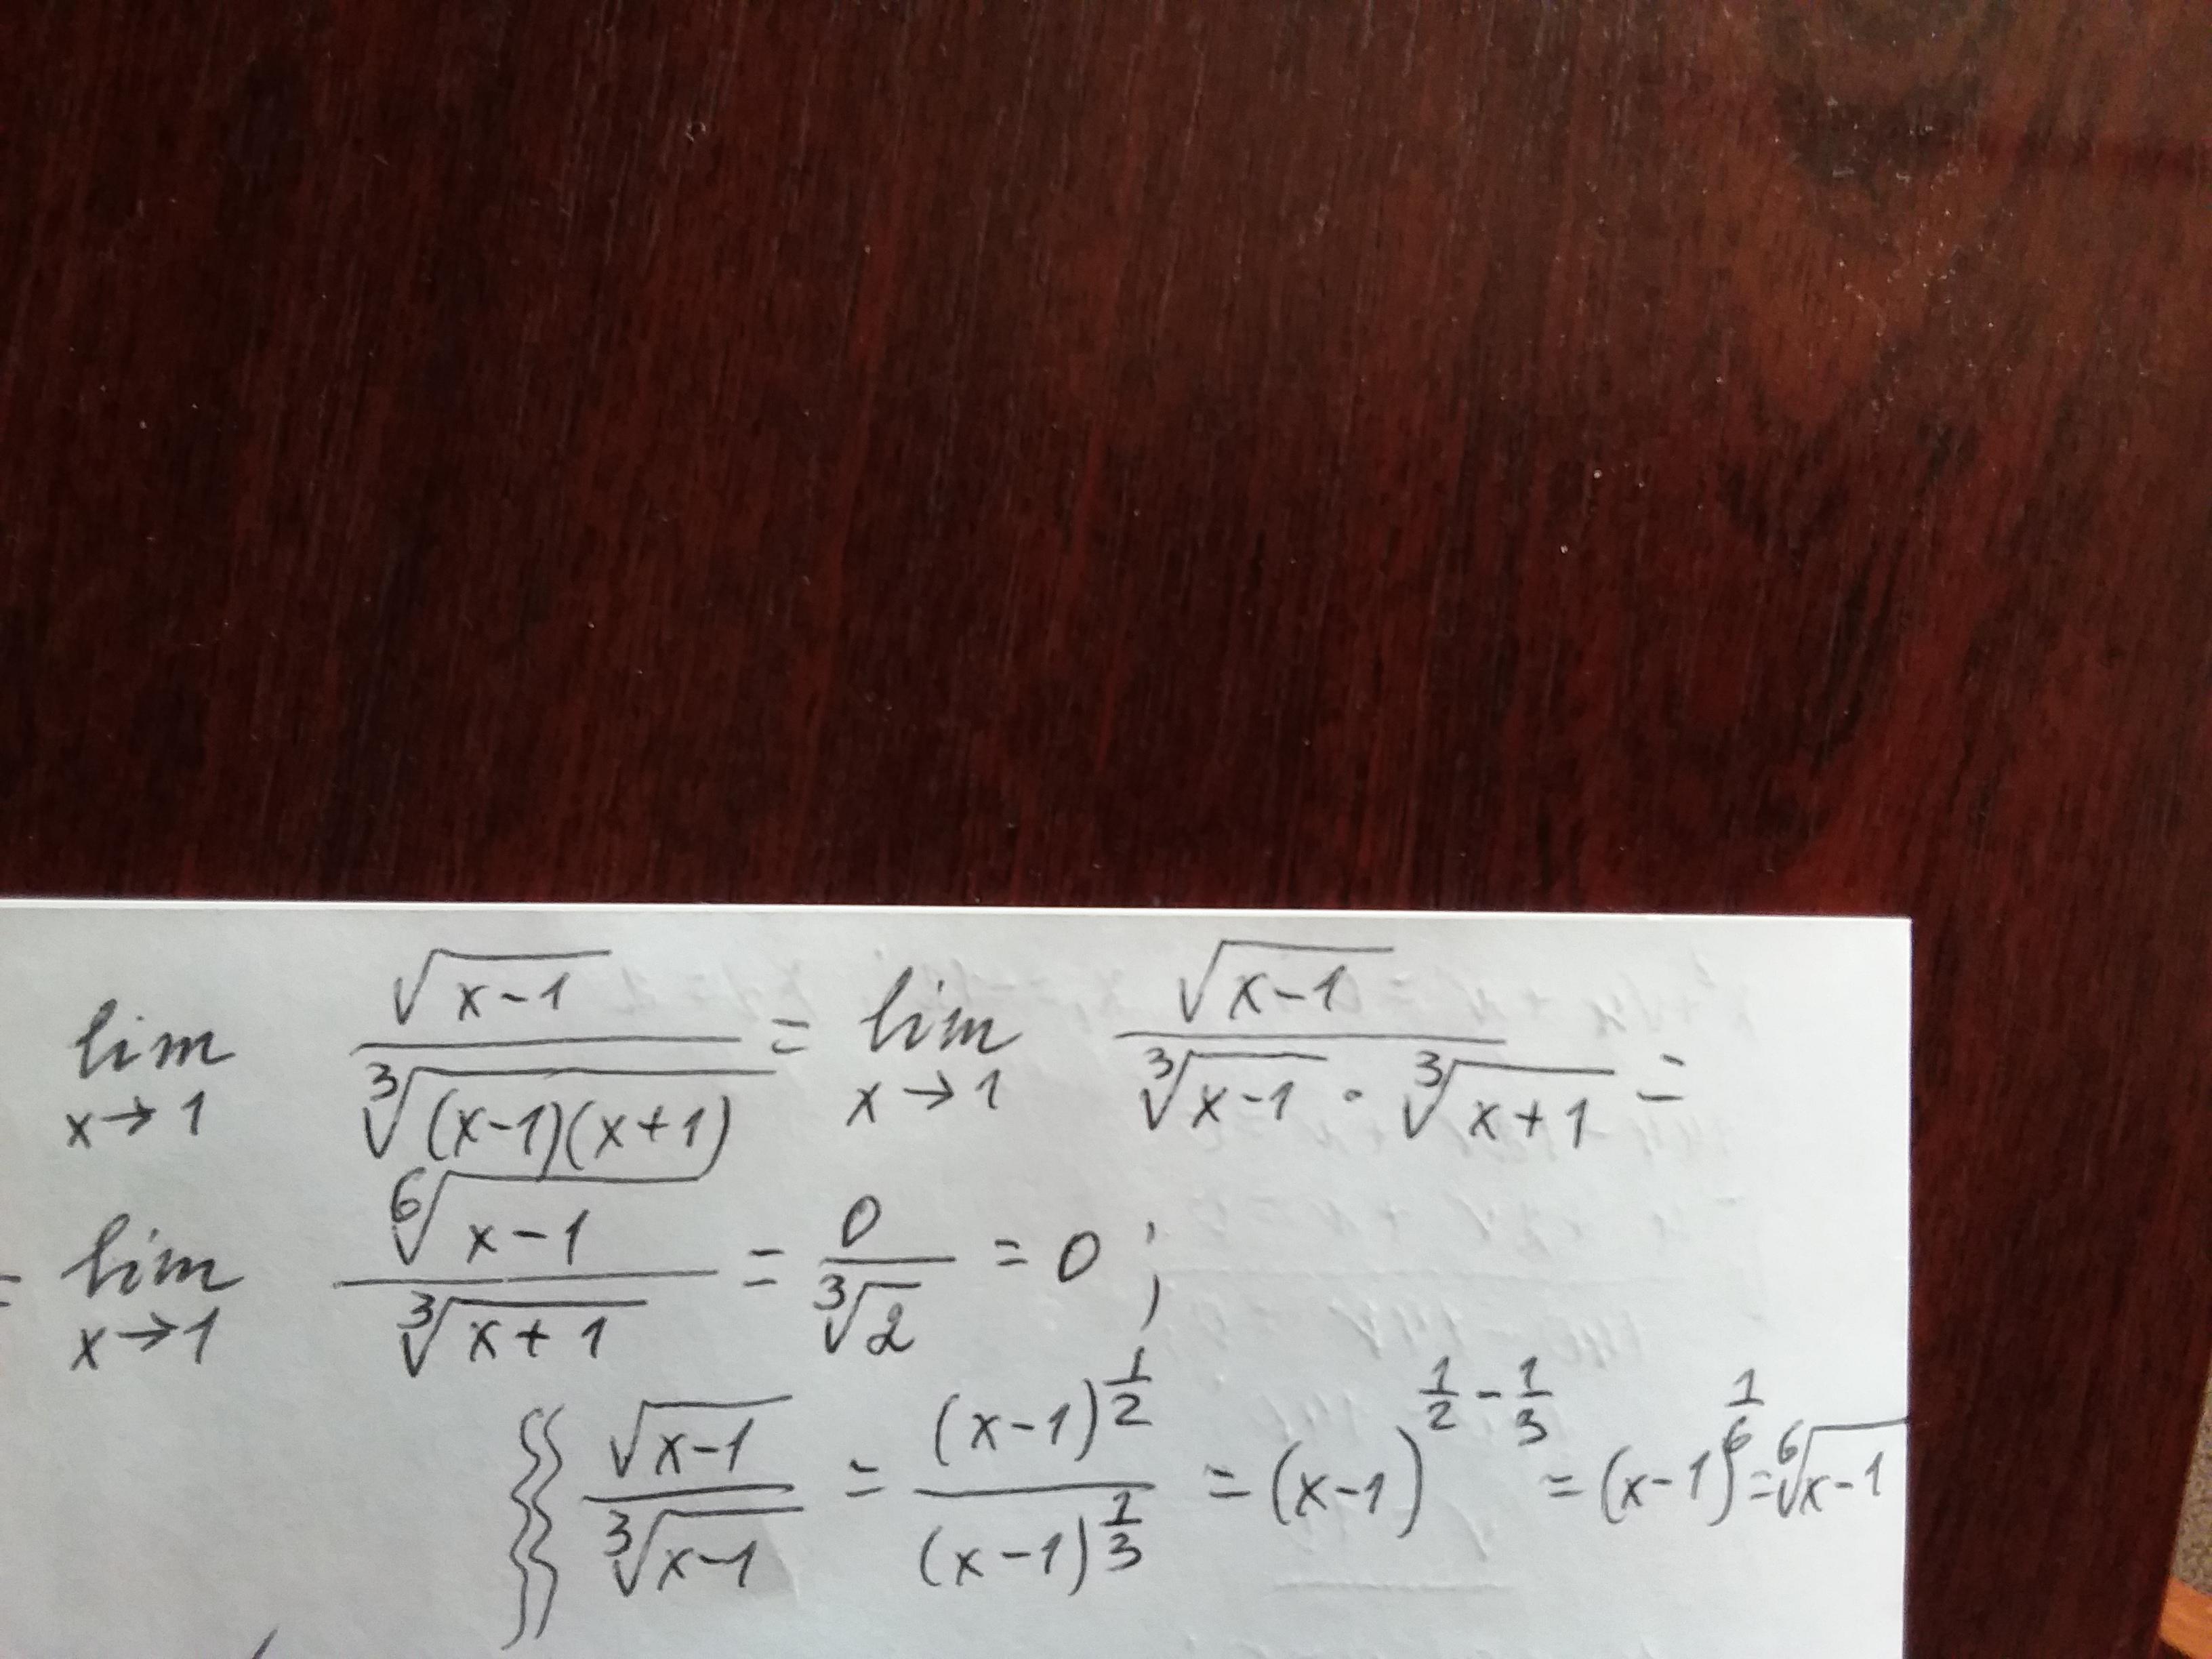 lim x→1 √(x-1) / ∛((x-1)(x+1)) = lim x→1 √(x-1) / (∛(x-1) · ∛(x+1)) =
= lim x→1 ⁶√(x-1) / ∛(x+1) = 0/∛2 = 0 ;
{{ √(x-1) / ∛(x-1) = (x-1)^(1/2) / (x-1)^(1/3) = (x-1)^(1/2 - 1/3) = (x-1)^(1/6) = ⁶√(x-1)